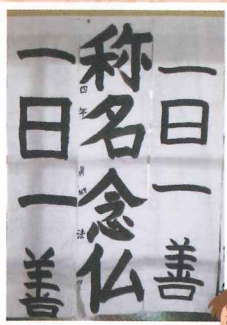 一日一善
称名念仏
一日一善